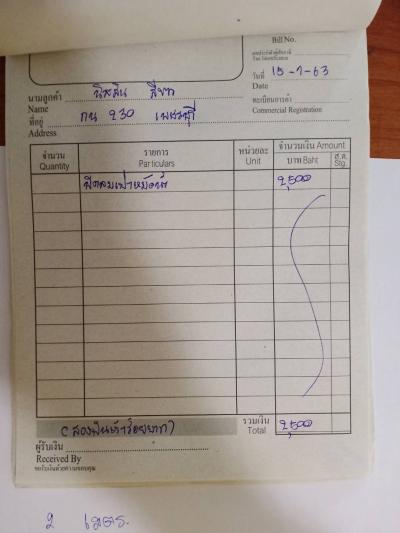 Bill No.
เลขประจำตัวผู้เสียภาษี
Tax Identification
วันที่ 15-1-63
Date
นามลูกค้า นิสสัน สีขาว
Name
ทะเบียนการค้า
Commercial Registration
ที่อยู่ กน 230 เพชรบุรี
Address
จำนวน รายการ หน่วยละ จำนวนเงิน Amount
Quantity Particulars Unit บาท Baht ส.ต. Stg.
2,500
(สองพันห้าร้อยบาท) รวมเงิน 2,500
Total
ผู้รับเงิน
Received By
ขอรับเงินด้วยความขอบคุณ
2 เมตร.